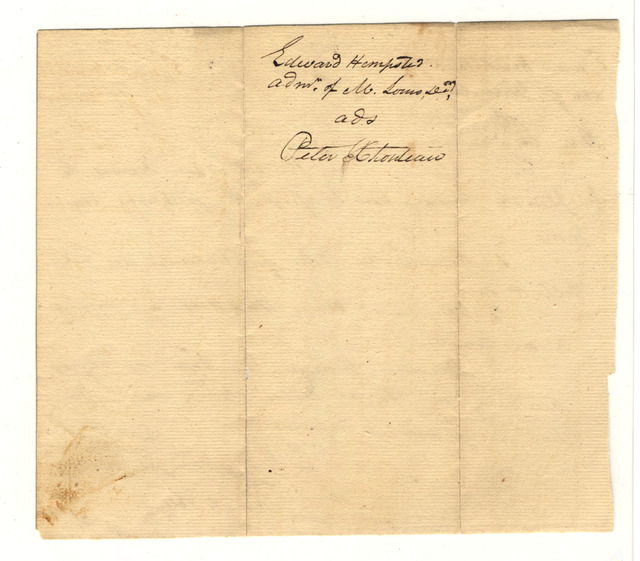 Edward Hempsted.
admr. of M. Lewis, Decd,
ads
Peter Chouteau